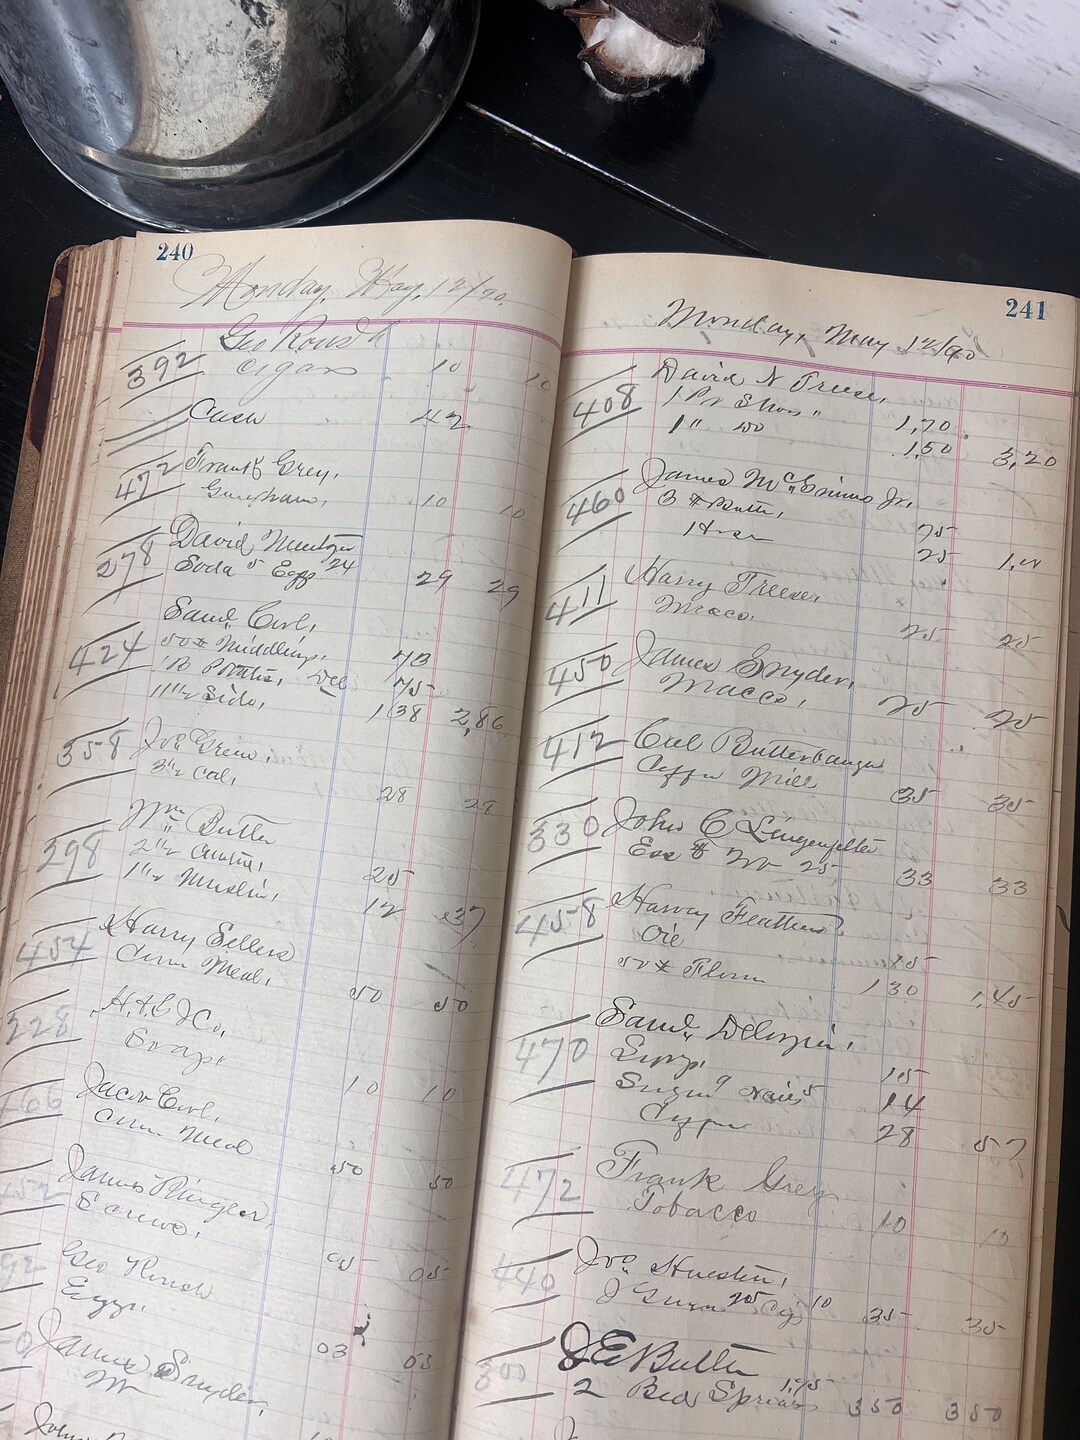 240
Monday, May, 12/90.
Geo Roush
392 Cigars 10 10
Cash 42
472 Frank Grey,
Gingham, 10 10
278 David
Soda 5 Eggs 24 29 29
Saml
424 50# Middlings, 73
1 B Potatoes, 75
11 1/2 Side, 1 38 2,86
358 Joe
3 1/2 28 28
Wm Butler
398 2 1/2 25
1 1/2 Muslin, 12 37
454 Harry Sellers
Corn Meal, 50 50
228 H. & Co,
Soap, 10 10
466 Jacob
Corn Meal 50 50
452 James Ringler,
Screws, 05 05
92 Geo Roush
Eggs, 03 03
James Snyder,
John
241
Monday, May 12/90
408 David N Treese,
1 Pr Shoes " 1,70
1 " do 1,50 3,20
460 James Mc Jr,
3 # Butter, 75
25 1,00
411 Harry Treese,
Macco, 25 25
450 James Snyder,
Macco, 25 25
412 Cal Butterbaugh
Coffee Mill 35 35
330 John C Lingenfelter
25 33 33
458 Harvy Feathers
Oil 15
50 # Flour 1 30 1,45
470 Saml Delozier,
Syrp, 15
Sugar 9 Nails 5 14
Coffee 28 57
472 Frank Grey
Tobacco 10 10
440 Joe
25 Cigs 10 35 35
J E Butler
300 2 Bed Springs 1,75 3 50 3 50
J